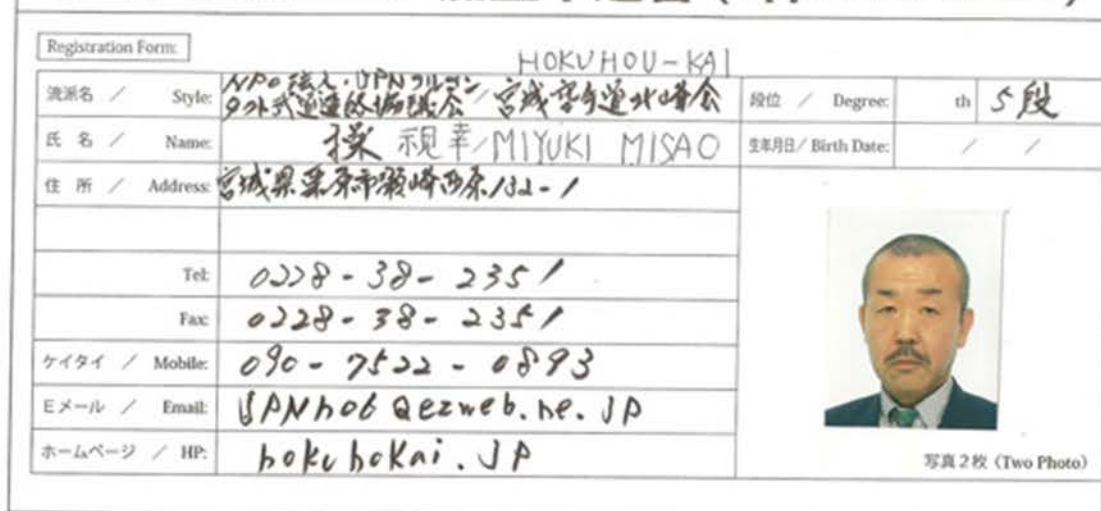 Registration Form:
HOKUHOU-KAI
流派名 / Style:
NPO法人・JPNフルコン
タクト武道連絡協議会 / 宮城空手道北峰会
段位 / Degree: th 5段
氏 名 / Name: 操 視幸/MIYUKI MISAO
生年月日/ Birth Date: / /
住 所 / Address: 宮城県栗原市瀬峰西原132-1
Tel: 0228-38-2351
Fax: 0228-38-2351
ケイタイ / Mobile: 090-7522-0893
Eメール / Email: JPNho6@ezweb.ne.JP
ホームページ / HP: hokuhoKai.JP
写真2枚 (Two Photo)